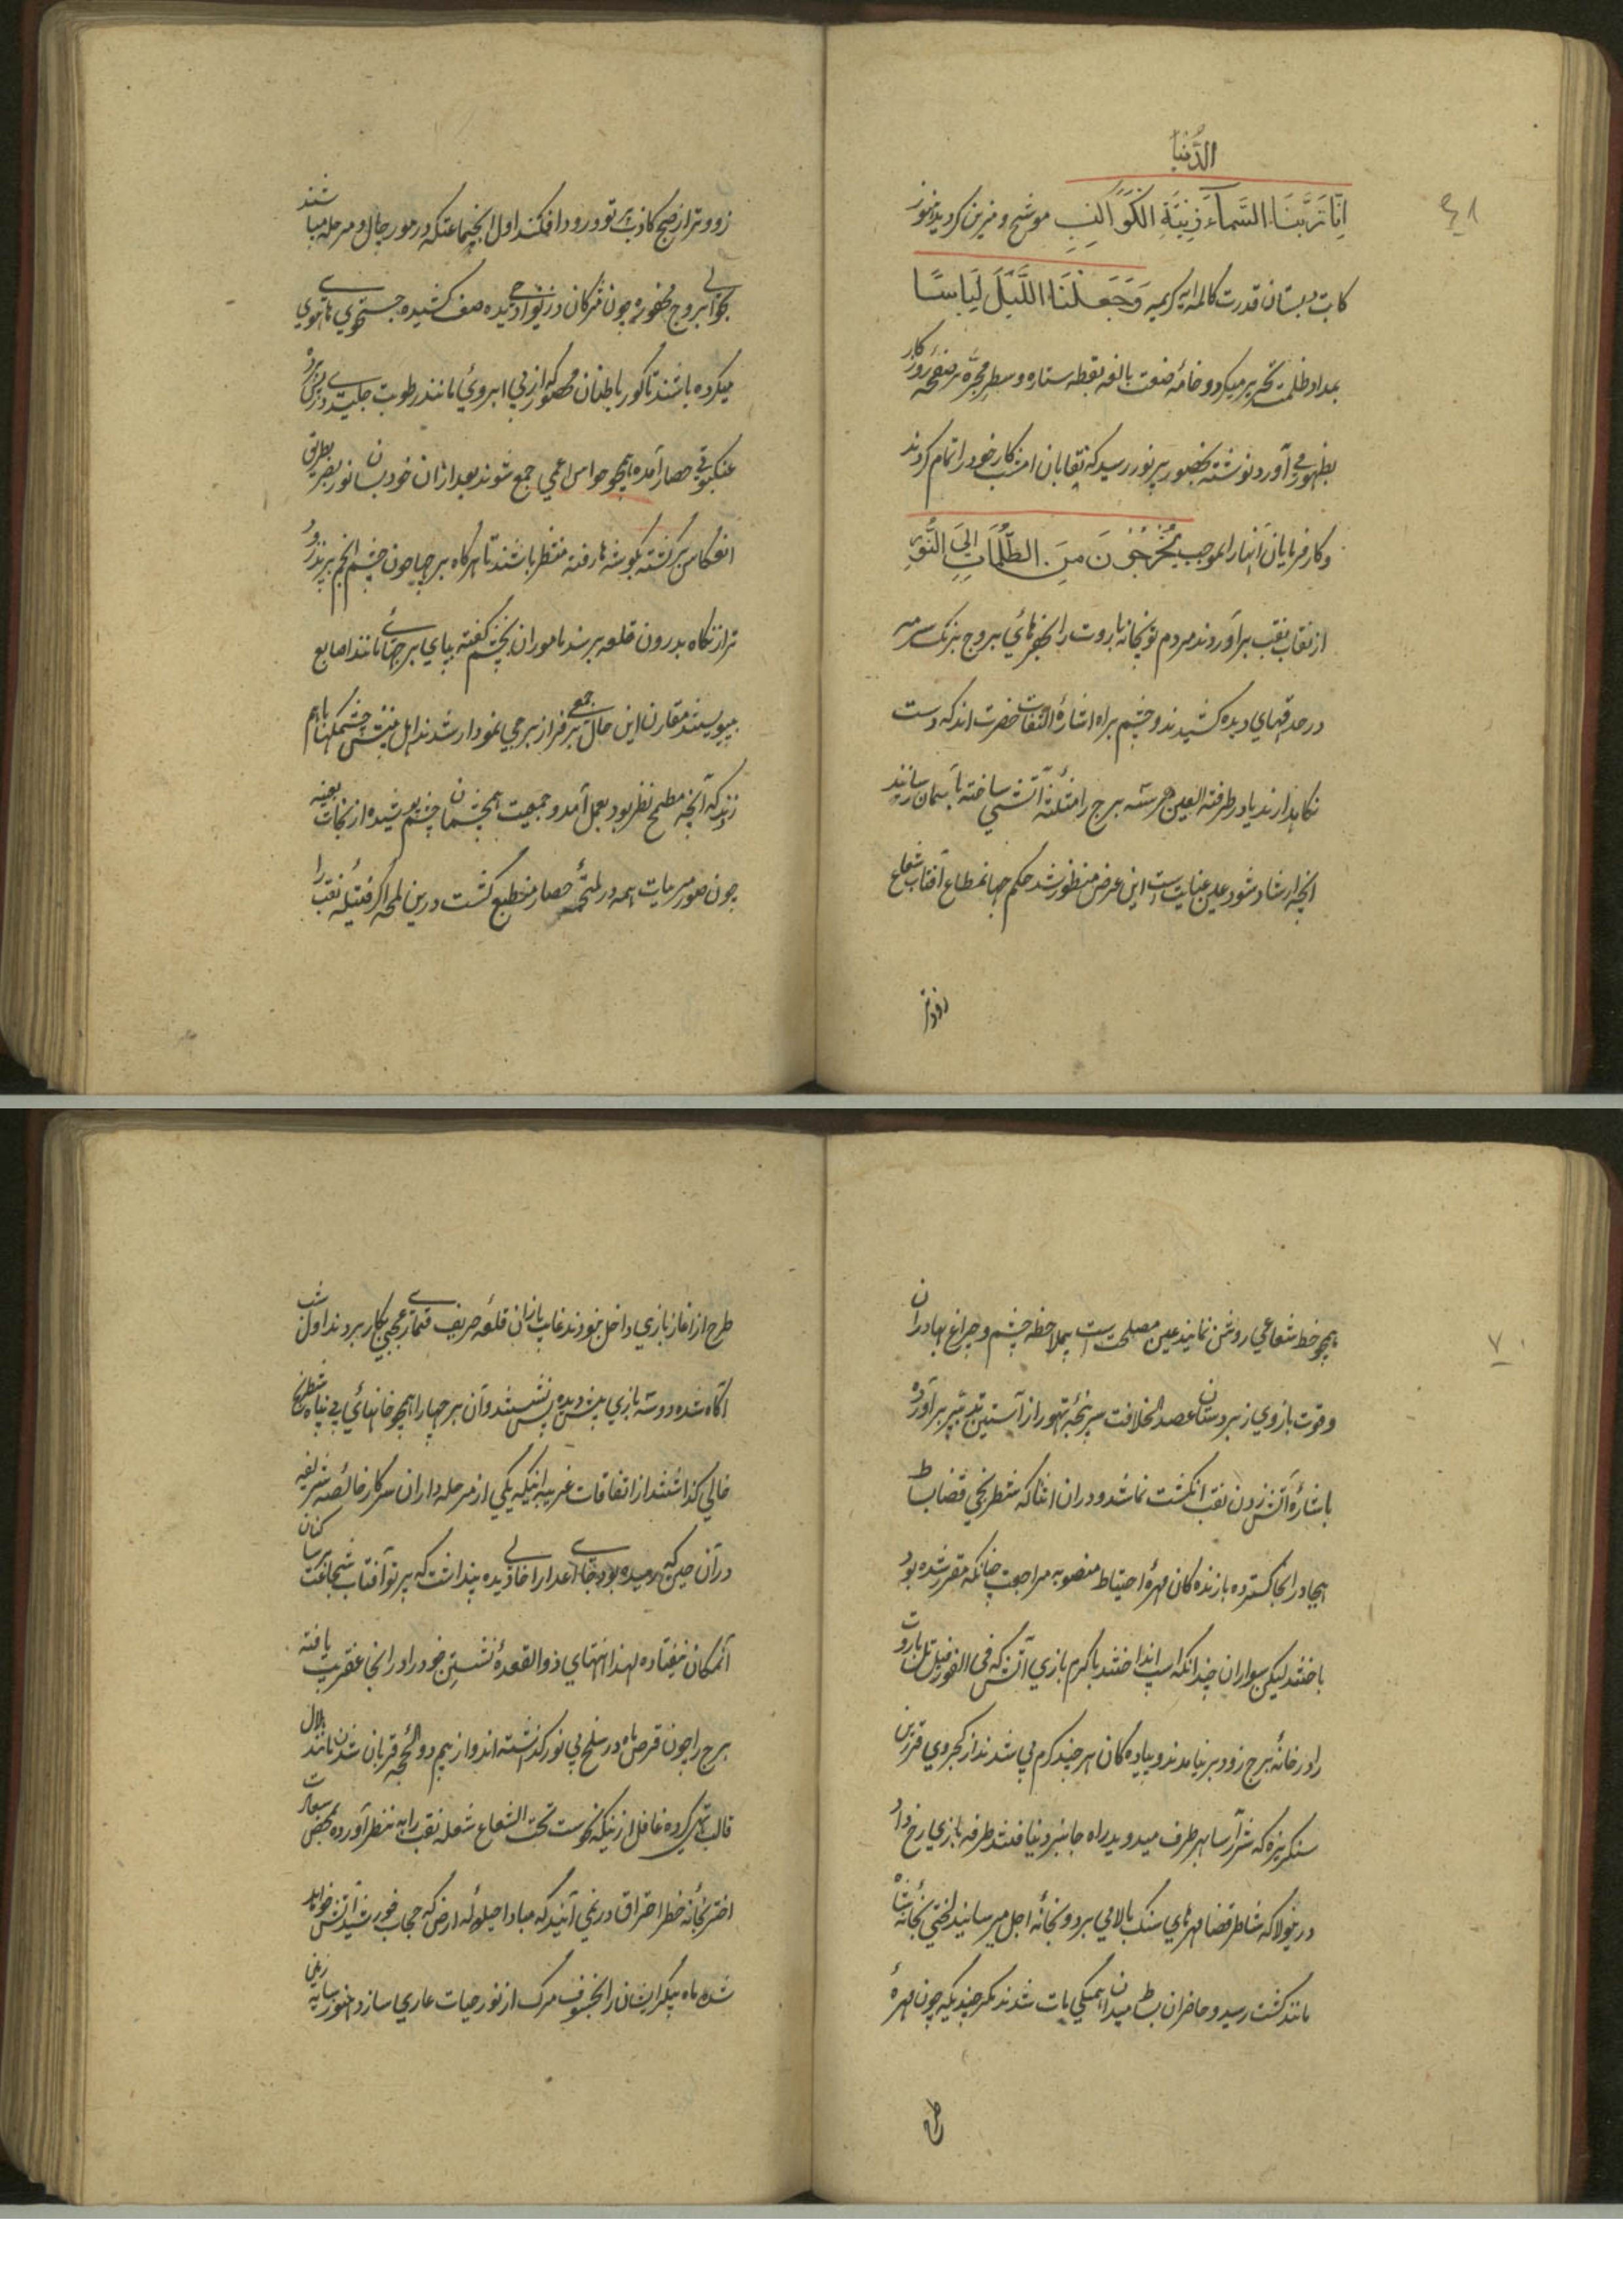 ٤٨
الدُّنیا
اِنّا زَیَّنَّا السَّماءَ بِزِینَةِ الکَواکِبِ موشح و مزین کردید هنوز
کاتب دبستان قدرت کامله آیه کریمه وَجَعَلْنَا اللَّیلَ لِباسًا
بمداد ظلمت تحریر میکرد و خامهٔ صنعت بالغه نقطه ستاره و سطر مجره بر صفحهٔ روزکار
بظهور می آورد نوشته بحضور پرنور رسید که نقابان امشب کار خود را تمام کردند
و کارفرمایان انبار را بموجب یُخْرِجُونَ مِنَ الظُّلُماتِ اِلَی النُّورِ
از نقاب نقب برآوردند مردم توپخانه باروت را بحفرهای بروج برنک سرمه
در حدقهای دیده کشیدند و چشم براه اشارهٔ التفات حضرت اند که دست
نکاهدارند یا در طرفة العین هر سه برج را منارهٔ آتشی ساخته بآسمان رسانند
انچه ارشاد شود عین عنایت است این عرض منظور شد حکم جهانمطاع آفتاب شعاع
زودتر
زودتر از صبح کاذب پرتو ورود افکند اول اینجماعتکه در مورچال و مرحله میباشند
بحوالی بروج محفوره چون مژکان در نواحی دیده صف کشیده جستجوی هایهوی
میکرده باشند تا کورباطنان محصور که از بی ابروئی مانند رطوبت جلیدی در پس پرده
عنکبوتی حصار آمده همچو حواس اعمی جمع شوند بعد ازان خود بسان نور بصر بطریق
انعکاس برکشته بکوشه ها رفته منتظر باشند تا هرکاه برجها چون چشم انجم بپرند زود
تر از نکاه بدرون قلعه برسند ماموران بچشم کفته بپای برجهائی مانند اصابع
بپیوستند مقارن این حال جمعی بر فراز برجی نمودار شدند اهل بینش چشمکها باهم
زدند که آنچه مطمح نظر بود بعمل آمد و جمعیت همچشمان چشم پوشیده از نجات بعینه
چون صور مرئیات همه در ملتحمهٔ حصار منطبع کشت درین لمحه اکر فتیله نقب را
٧٠
همچو خط شعاعی روشن نمایند عین مصلحت است بملاحظه چشم و چراغ بهادران
و قوت بازوی زبردستان عضد الخلافت سرپنجهٔ تهور از آستین تدبیر برآورده
باشارهٔ آتش زدن نقب انکشت نما شد و دران اثنا که شطرنجی قضا بساط
هیجا در انجا کسترده بازنده کان مهرهٔ احتیاط منصوبه مراجعت چنانکه مقرر شده بود
باختند لیکن سواران چندانکه اسب انداختند با کرم بازی آتش که فی الفور فیل تل باروت
را در خانهٔ برج زود برنیامدند و پیاده کان هر چند کرم پی شدند از کجروی فرزین
سنکریزه که شرآرسا بهر طرف میدوید راه جانبر دنیافتند طرفه بازی رخ داد
درینولا که شاطر قضا مهرهای سنک بالا می برد و نجانهٔ اجل میرسانید لختی نجانهٔ شاه
مانند کشت رسید و حاضران بساط میدان همکی مات شدند مکر چندیکه چون مهرهٔ
طرح
طرح از اغاز بازی داخل نبودند غایب بازان قلعه حریف قماری عجبی بکار بردند اول شب
اکاه شده دو سه بازی پیش دیده پس نشستند و آن برجها را همچو خانهای بی پناه شطرنج
خالی کذاشتند از اتفاقات غریبه اینکه یکی از مرحله داران سرکار خالصه شریفه
در آن حین که رمیده بود جای اعدا را خالی دیده پنداشت که پرتو آفتاب شجاعت برسا کنان
آنمکان نیفتاده لهذا انتهای ذوالقعدهٔ نشستن خود را در انجا عقریب یافته
برج را چون قرص ماه در سلخ بی نور کذاشته اند و از بیم ذوالحجه قربان شدن مانند هلال
قالب تهی کرده غافل ازینکه نحوست تحت الشعاع شعله نقب را به نظر آورده بمحض سعادت
اختر بخانهٔ خطر احتراق در نمی آیند که مبادا حیلولهٔ ارض که حجاب خورشید آتش خواهد
شد ماه پیکر ایشان را بخسوف مرک از نور حیات عاری سازد هنوز سایه زمین